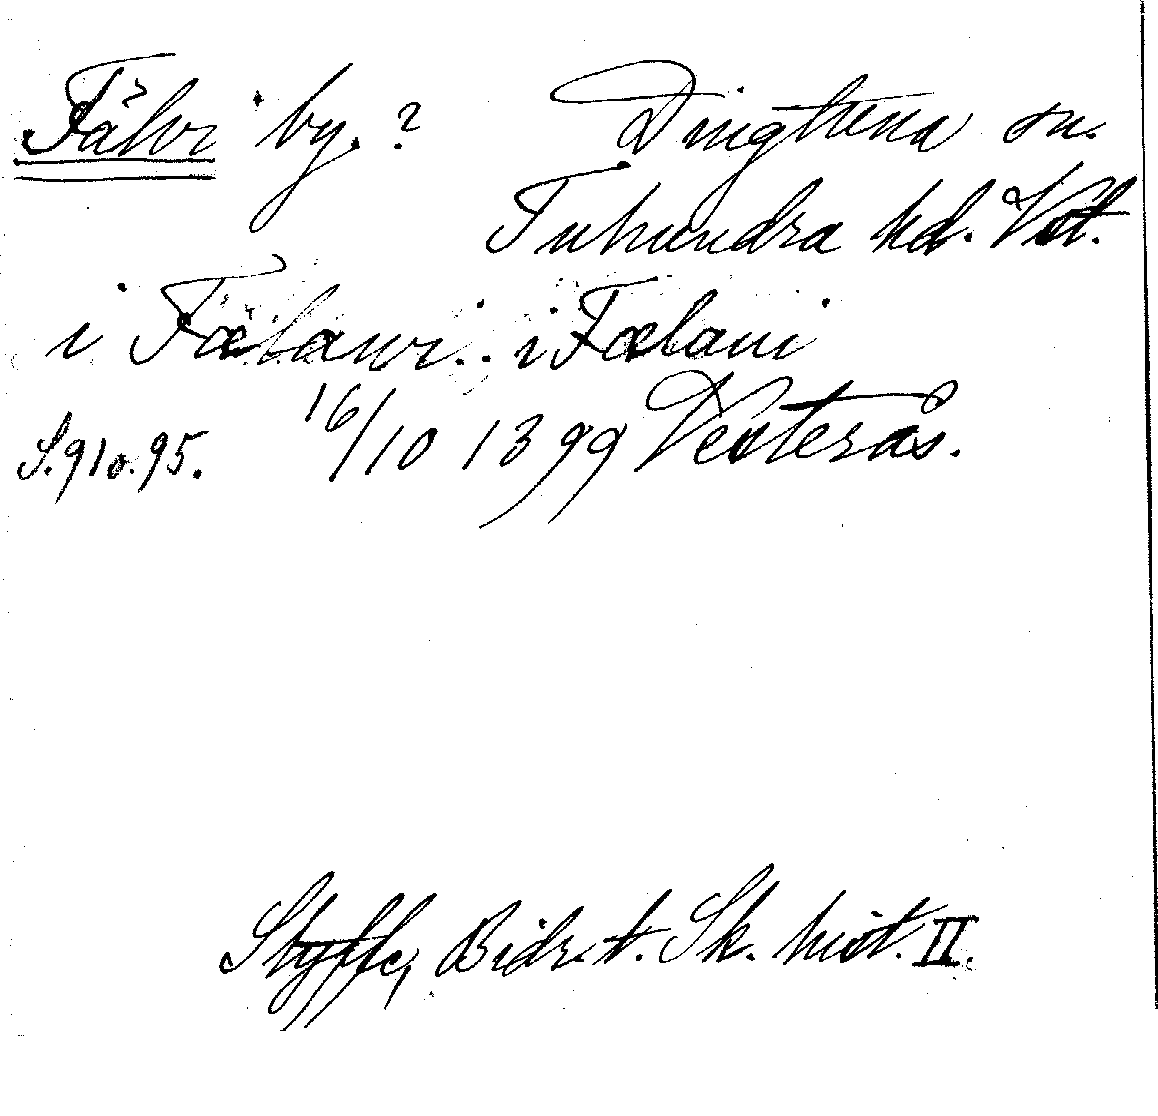 Fälvi by. ? Dingtuna sn.
Tuhundra hd. Vst.
i Fælawi.. i Fælaui
S. 91 o. 95. 16/10 1399 Vesterås.
Styffe, Bidr. t. Sk. hist. II.